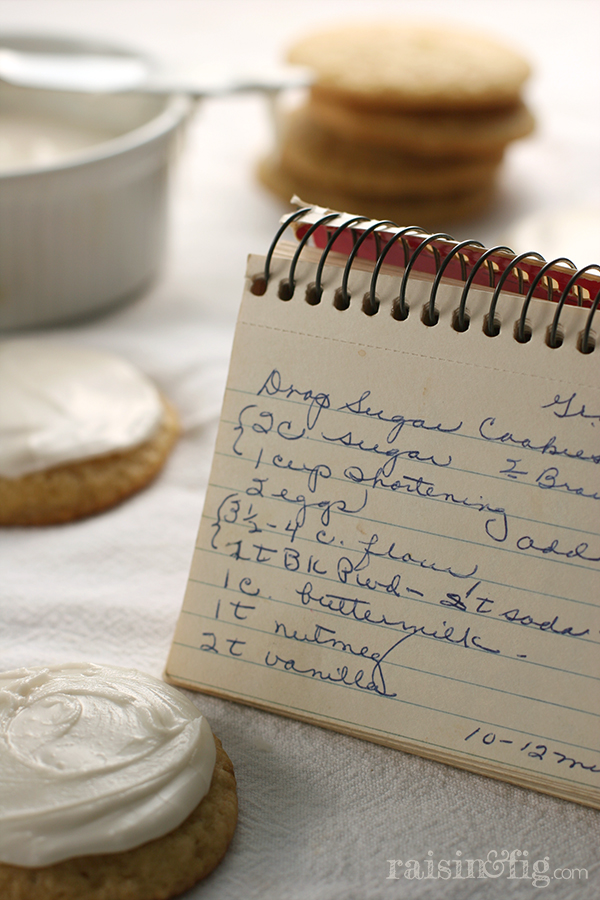 Drop Sugar Cookies
2 c. sugar
1 cup shortening
2 eggs add
3 1/2 - 4 c. flour
1 t BK Pwd - t soda
1 c. buttermilk -
1 t nutmeg
2 t vanilla
10-12
raisin&fig.com